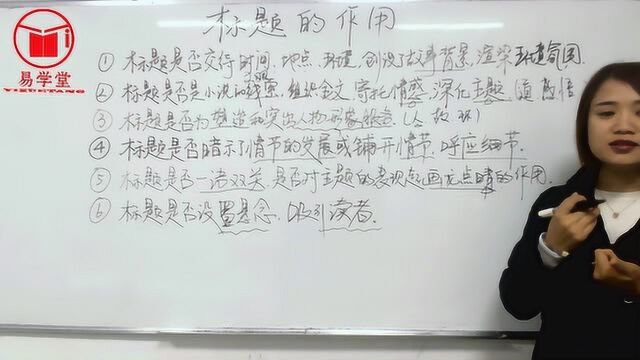 标题的作用
易学堂
YIXUETANG
① 标题是否交待时间、地点、环境,创设了故事背景,渲染环境氛围.
② 标题是否是小说的线索,组织全文,寄托情感,深化主题
③ 标题是否为塑造和突出人物形象服务(人 物 环)
④ 标题是否暗示了情节的发展或铺开情节,呼应细节.
⑤ 标题是否一语双关,是否对主题的表现起画龙点睛的作用.
⑥ 标题是否设置悬念,吸引读者.